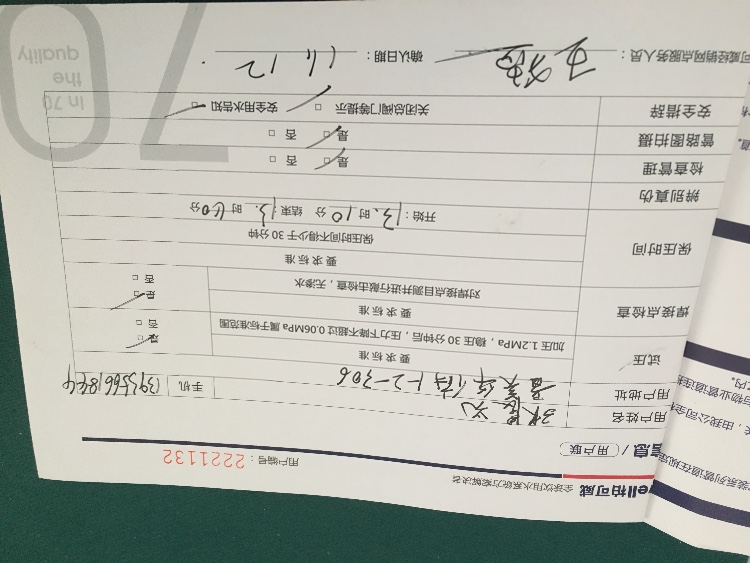 ell柏可威 全球饮用水系统方案解决者
信息/ 用户联
用户编号：2221132
用户姓名
用户地址 1-2-306 手机
试压 要求标准
加压1.2MPa，稳压30分钟后，压力下降不超过0.06MPa属于标准范围
是 □
否 □
焊接点检查 要求标准
对焊接点目测并进行敲击检查，无渗水
是 □
否 □
保压时间 要求标准
保压时间不得少于30分钟
开始：13 时 10 分 结束：13 时 40 分
辨别真伪
检查管理 是 □ 否 □
管路图拍摄 是 □ 否 □
安全措辞 关闭总阀门等提示 □ 安全用水告知 □
可威经销网点服务人员： 确认日期：11.12
In 70
the
quality
70